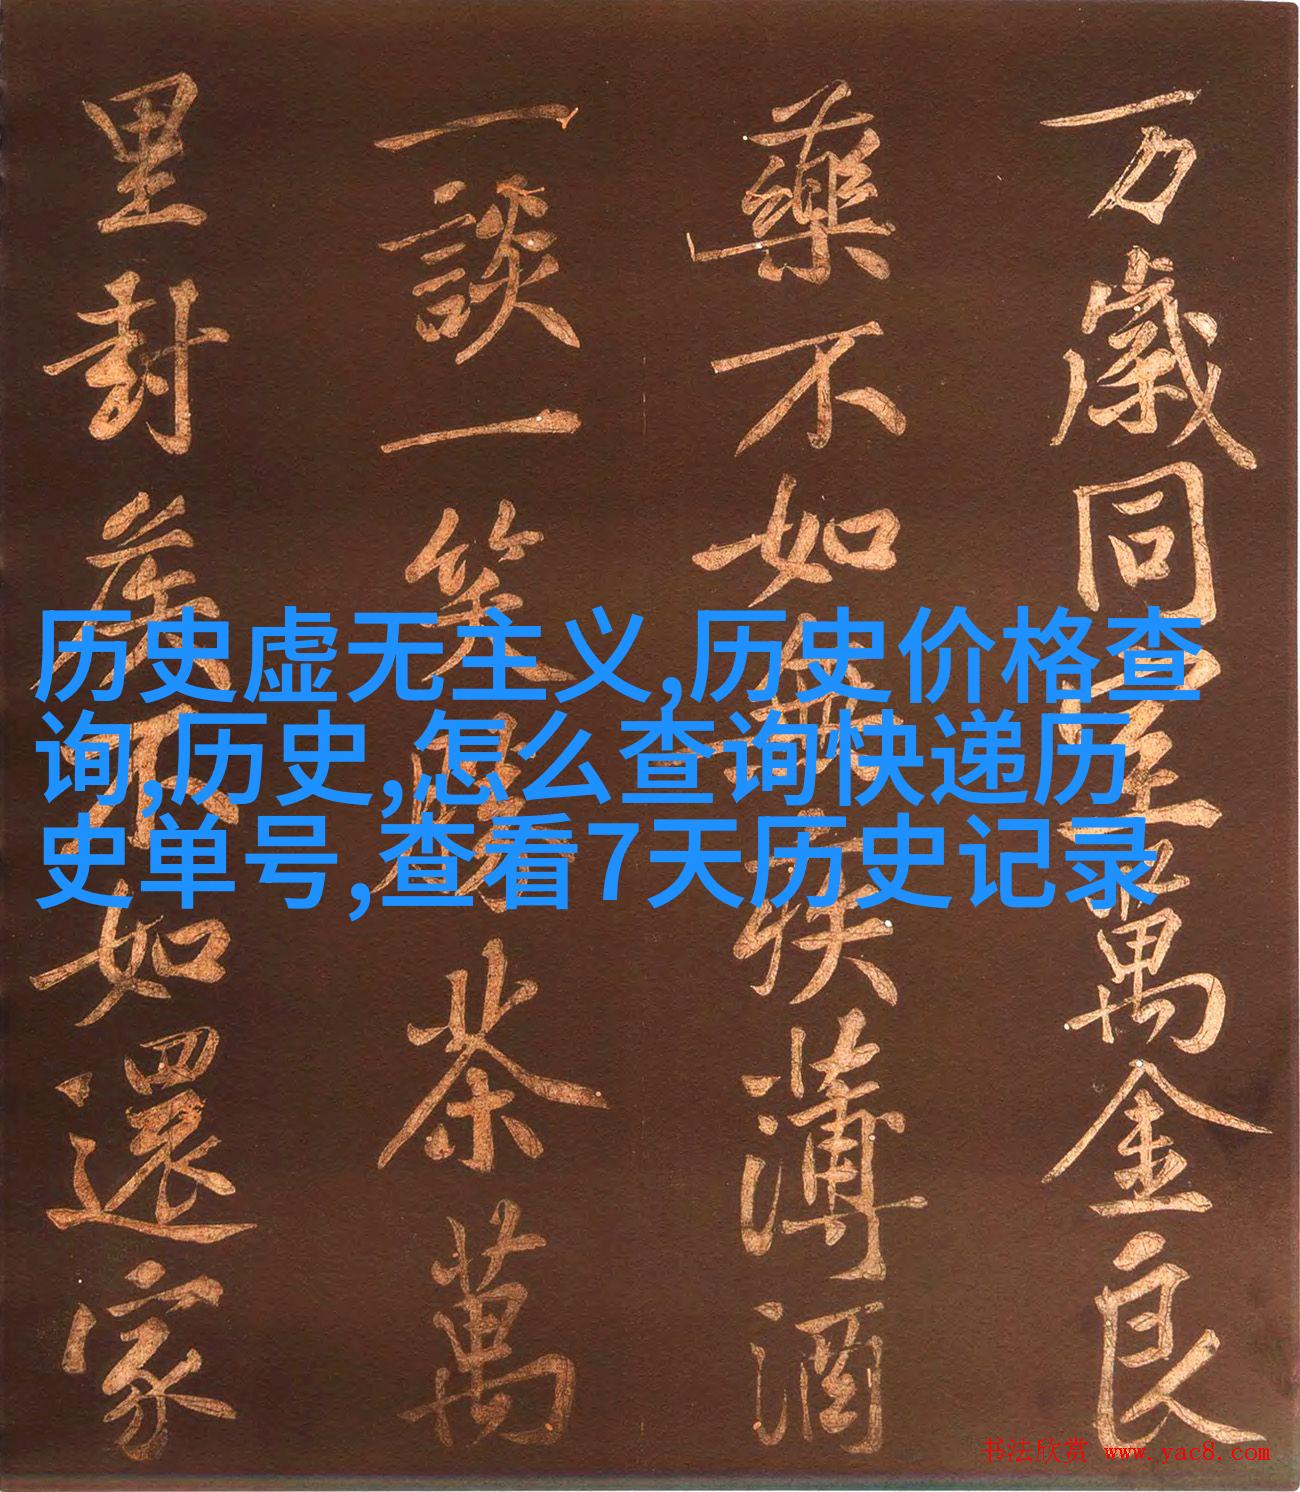 万歲同室萬金良
藥不如無疾薄酒
一談一笑勝茶萬
里封侯不如還家
历史虚无主义,历史价格查
询,历史,怎么查询快递历
史单号,查看7天历史记录
书法欣赏 www.yac8.com